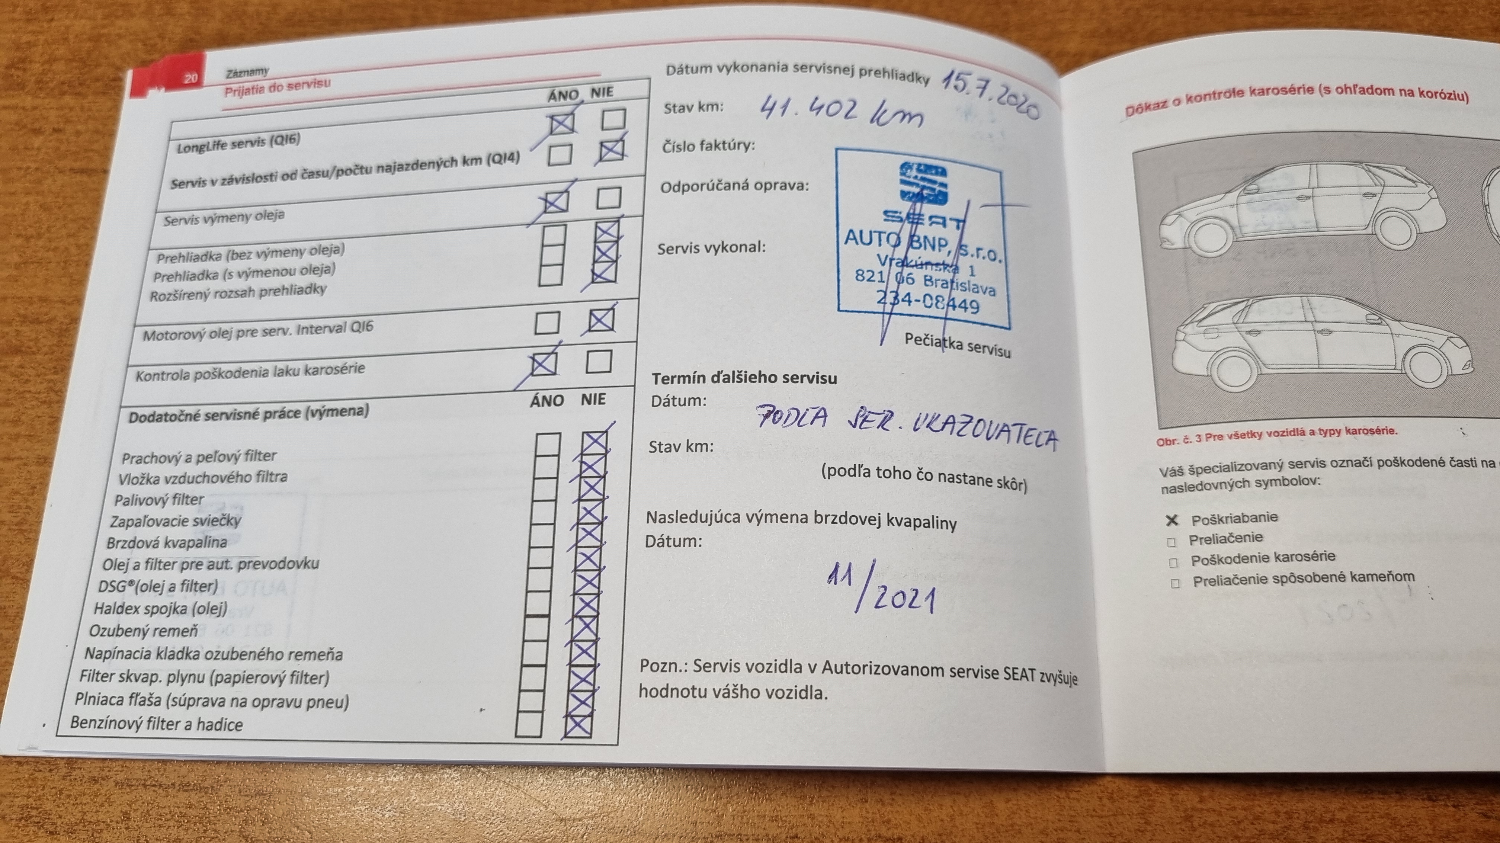 20
Záznamy
Prijatia do servisu
ÁNO NIE
LongLife servis (QI6)
Servis v závislosti od času/počtu najazdených km (QI4)
Servis výmeny oleja
Prehliadka (bez výmeny oleja)
Prehliadka (s výmenou oleja)
Rozšírený rozsah prehliadky
Motorový olej pre serv. Interval QI6
Kontrola poškodenia laku karosérie
ÁNO NIE
Dodatočné servisné práce (výmena)
Prachový a peľový filter
Vložka vzduchového filtra
Palivový filter
Zapaľovacie sviečky
Brzdová kvapalina
Olej a filter pre aut. prevodovku
DSG®(olej a filter)
Haldex spojka (olej)
Ozubený remeň
Napínacia kladka ozubeného remeňa
Filter skvap. plynu (papierový filter)
Plniaca fľaša (súprava na opravu pneu)
Benzínový filter a hadice
Dátum vykonania servisnej prehliadky 15.7.2020
Stav km: 41.402 km
Číslo faktúry:
Odporúčaná oprava:
Servis vykonal:
SEAT
AUTO BNP, s.r.o.
Vrakúnska 1
821 06 Bratislava
234-08449
Pečiatka servisu
Termín ďalšieho servisu
Dátum:
PODĽA SER. UKAZOVATEĽA
Stav km:
(podľa toho čo nastane skôr)
Nasledujúca výmena brzdovej kvapaliny
Dátum:
11/2021
Pozn.: Servis vozidla v Autorizovanom servise SEAT zvyšuje
hodnotu vášho vozidla.
Dôkaz o kontrole karosérie (s ohľadom na koróziu)
Obr. č. 3 Pre všetky vozidlá a typy karosérie.
Váš špecializovaný servis označí poškodené časti na
nasledovných symbolov:
Poškriabanie
Preliačenie
Poškodenie karosérie
Preliačenie spôsobené kameňom